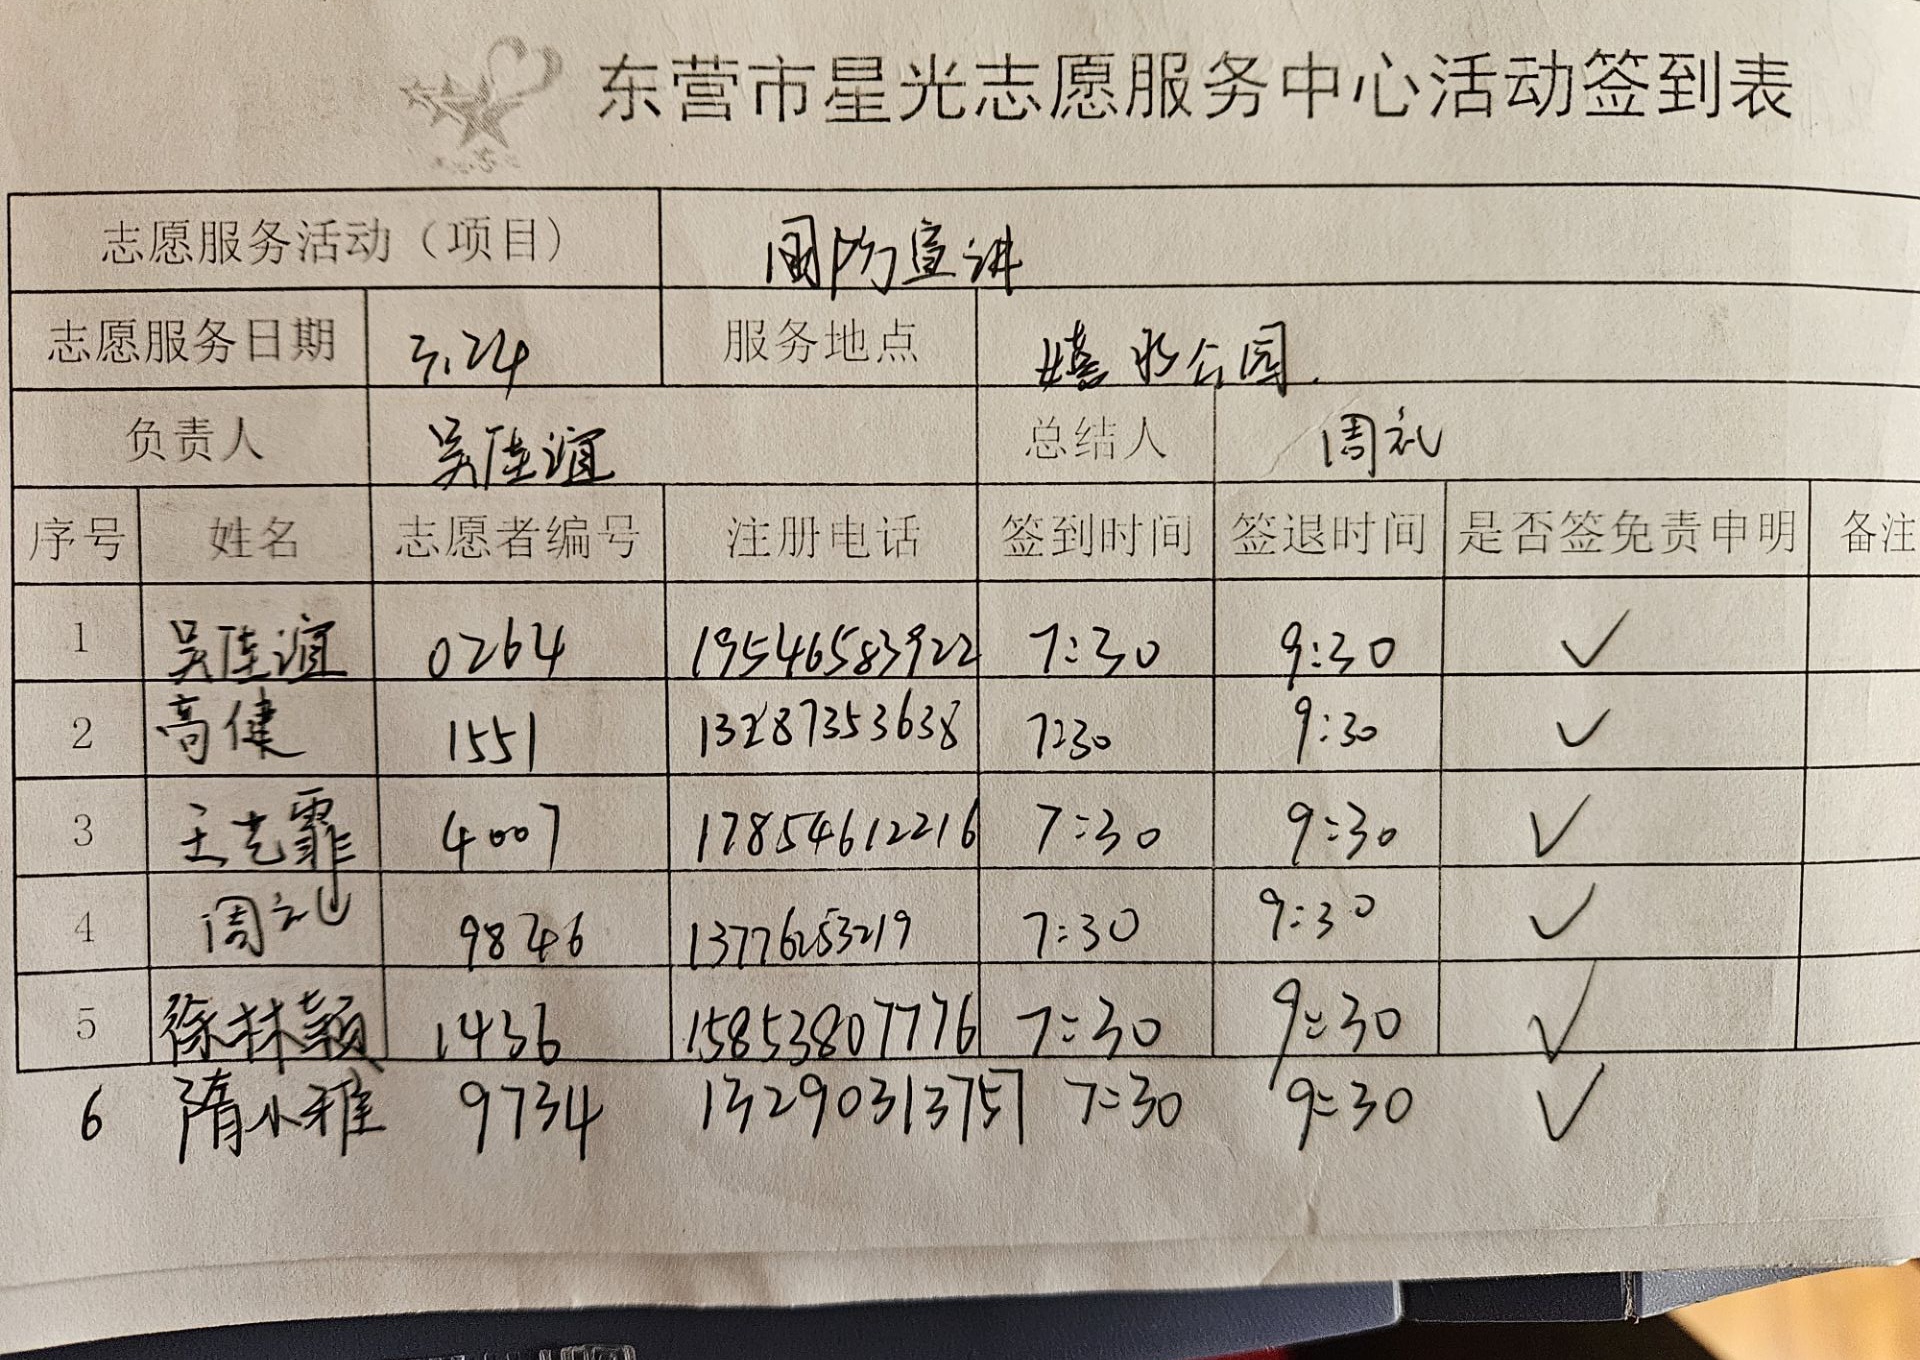 东营市星光志愿服务中心活动签到表
志愿服务活动（项目） 国防宣讲
志愿服务日期 3.24 服务地点 嬉水公园.
负责人 吴佳谊 总结人 周礼
序号 姓名 志愿者编号 注册电话 签到时间 签退时间 是否签免责申明 备注
1 吴佳谊 0264 19546583922 7:30 9:30 ✓
2 高健 1551 13287353638 7:30 9:30 ✓
3 王克霏 4007 17854612216 7:30 9:30 ✓
4 周礼 9846 13776253219 7:30 9:30 ✓
5 徐林颖 1436 15853807776 7:30 9:30 ✓
6 隋小雅 9734 13290313757 7:30 9:30 ✓